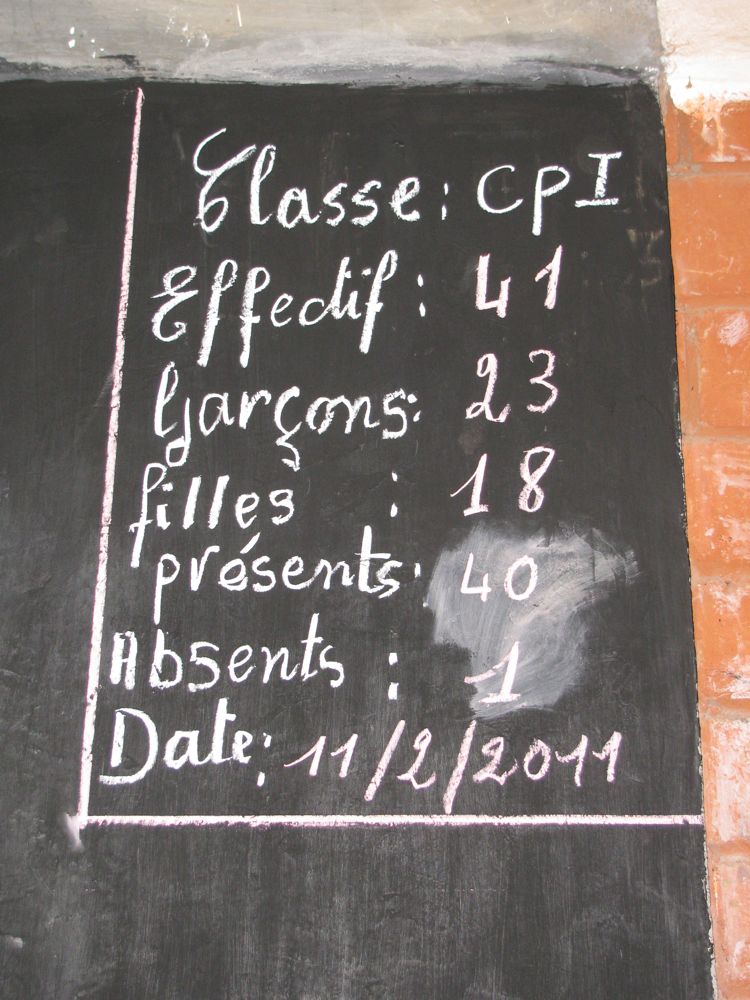 Classe : CPI
Effectif : 41
Garçons : 23
filles : 18
présents : 40
Absents : 1
Date : 11/2/2011